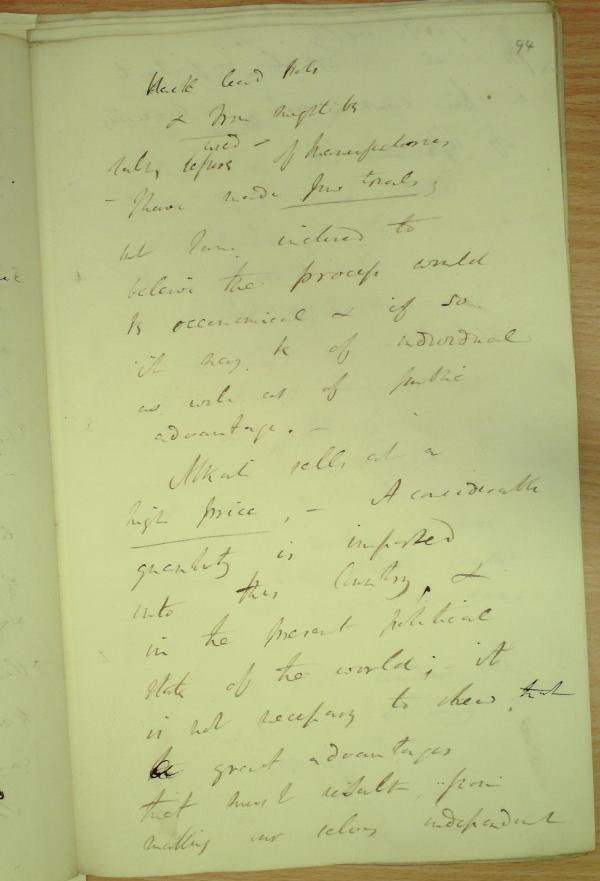 94
black lead pots
& Iron might be
used -
of Manufactories
- I have made few trials;
but I am inclined to
believe the process would
be oeconomical & if so
it may be of individual
as well as of public
advantage. -
Alkali sells at a
high price, - A considerable
quantity is imported
into this Country, &
in the present political
state of the world; - it
is not necessary to shew that
great advantages
that must result from
making our selves independent